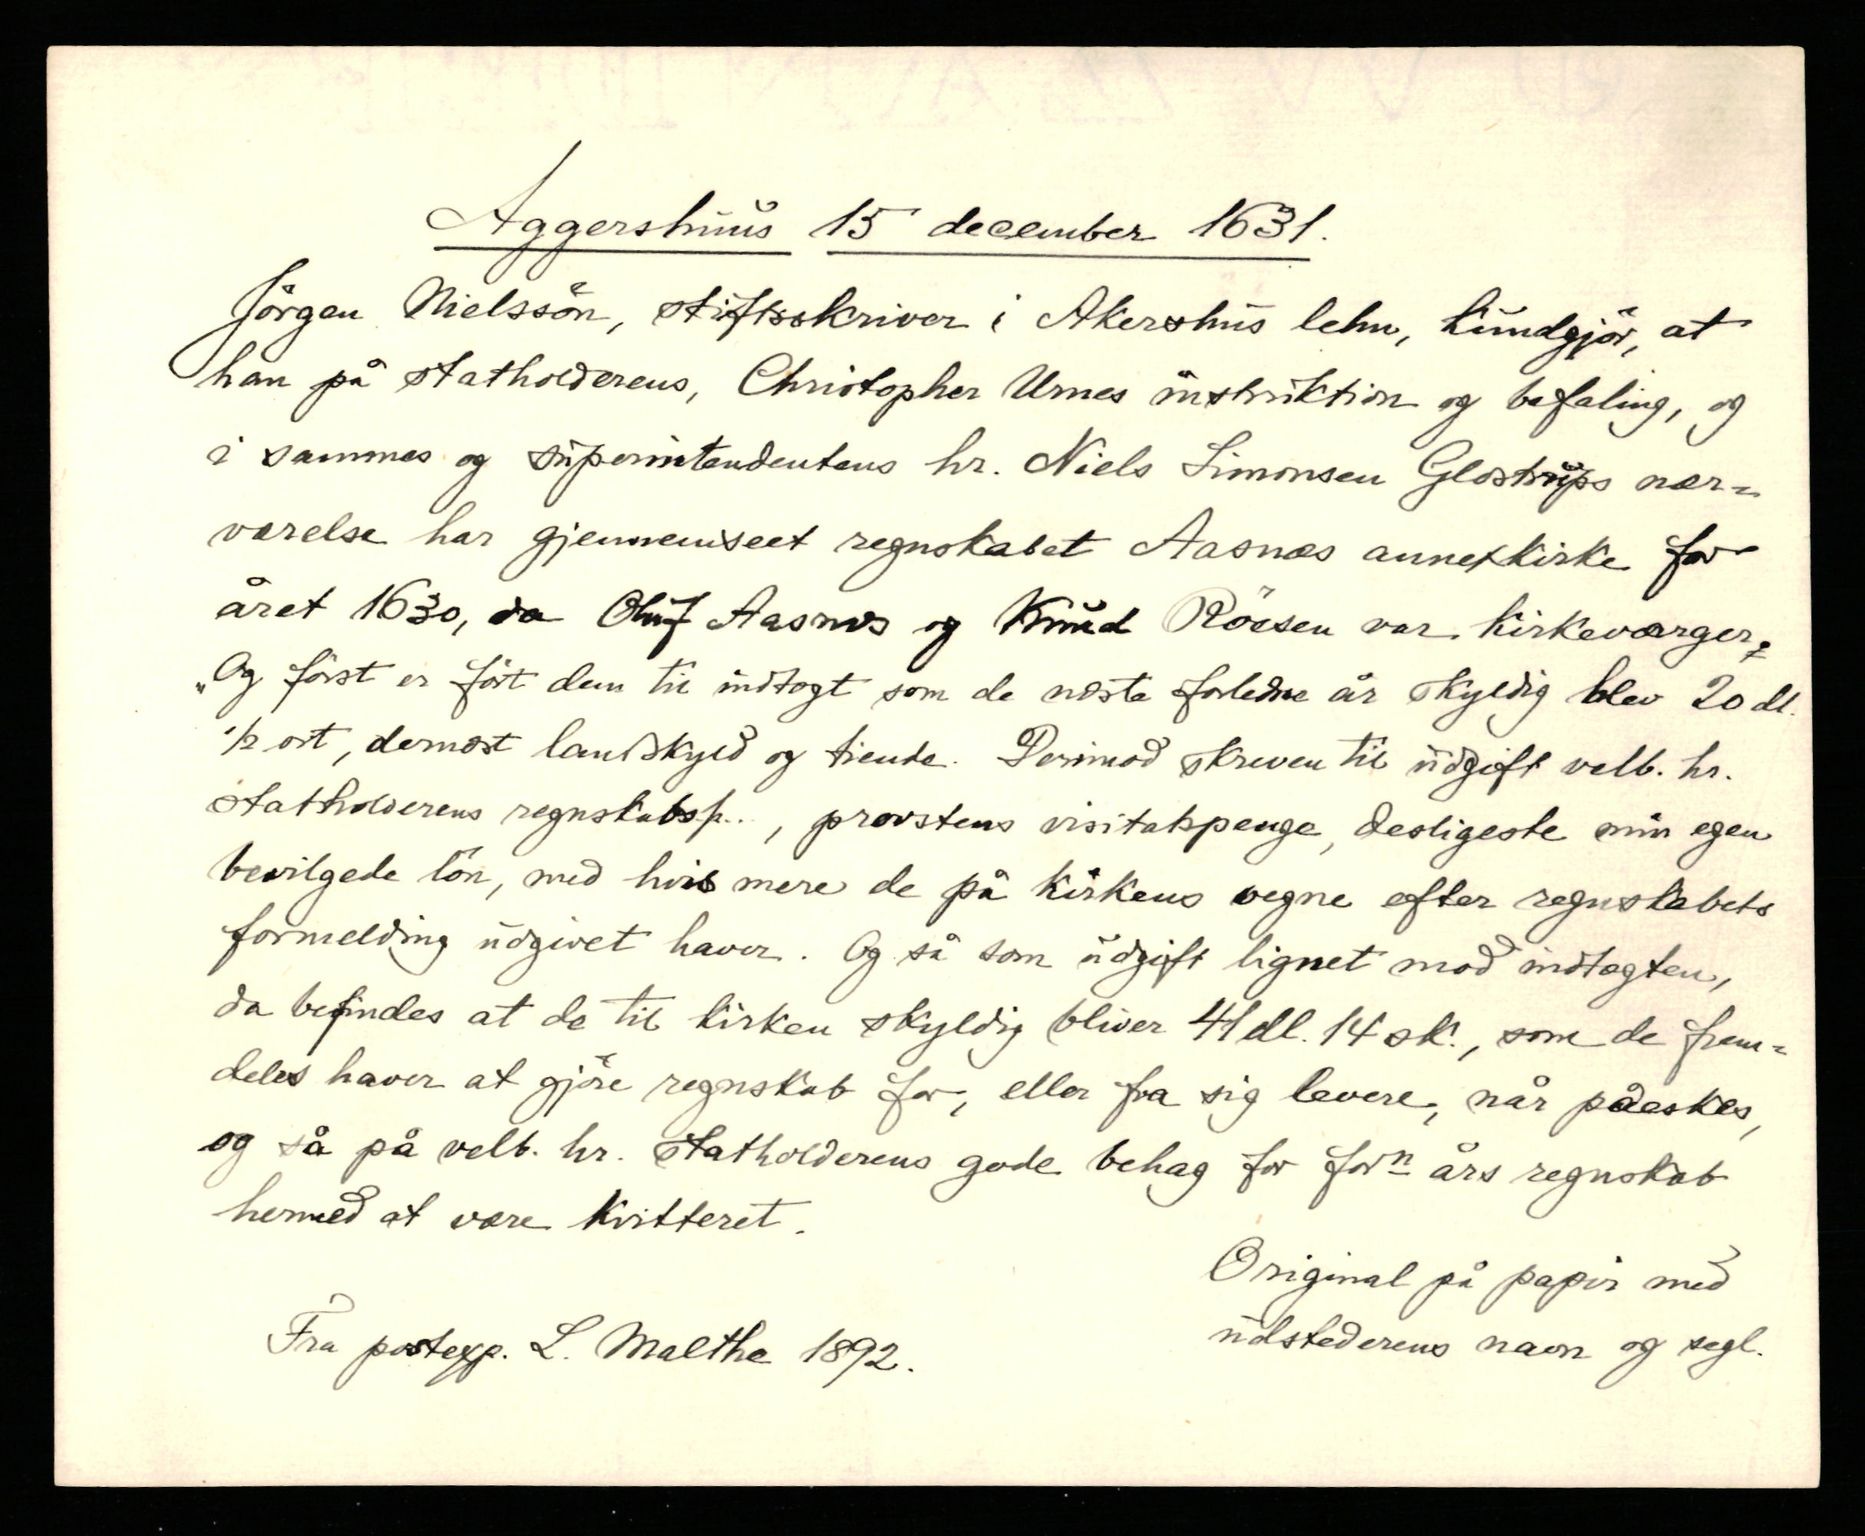 Aggershuus 15 december 1631.
Jörgen Nielssön, stiftsskriver i Akershus lehn, kundgjör, at
han på statholderens, Christopher Urnes instruktion og befaling, og
i sammes og superintendentens hr. Niels Simonsen Glostrups nær-
værelse har gjennemseet regnskabet Aasnæs annexkirke for
året 1630, da Oluf Aasnæs og Knud Röesen var kirkeværger;
"Og först er fört dem til indtægt som de næste forledne år skyldig blev 20 dl.
1/2 ort, dernæst landskyld og tiende. Derimod skreven til udgift velb. hr.
statholderens regnskabsp.., provstens visitatspenge, desligeste min egen
bevilgede lön, med hvis mere de på kirkens vegne efter regnskabets
formelding udgivet haver. Og så som udgift lignet mod indtægten,
da befindes at de til kirken skyldig bliver 41 dl. 14 sk., som de frem-
deles haver at gjöre regnskab for, eller fra sig levere, når påeskes,
og så på velb. hr. statholderens gode behag for forn års regnskab
hermed at være kvitteret.
Original på papir med
udstederens navn og segl.
Fra postexp. L. Malthe 1892.